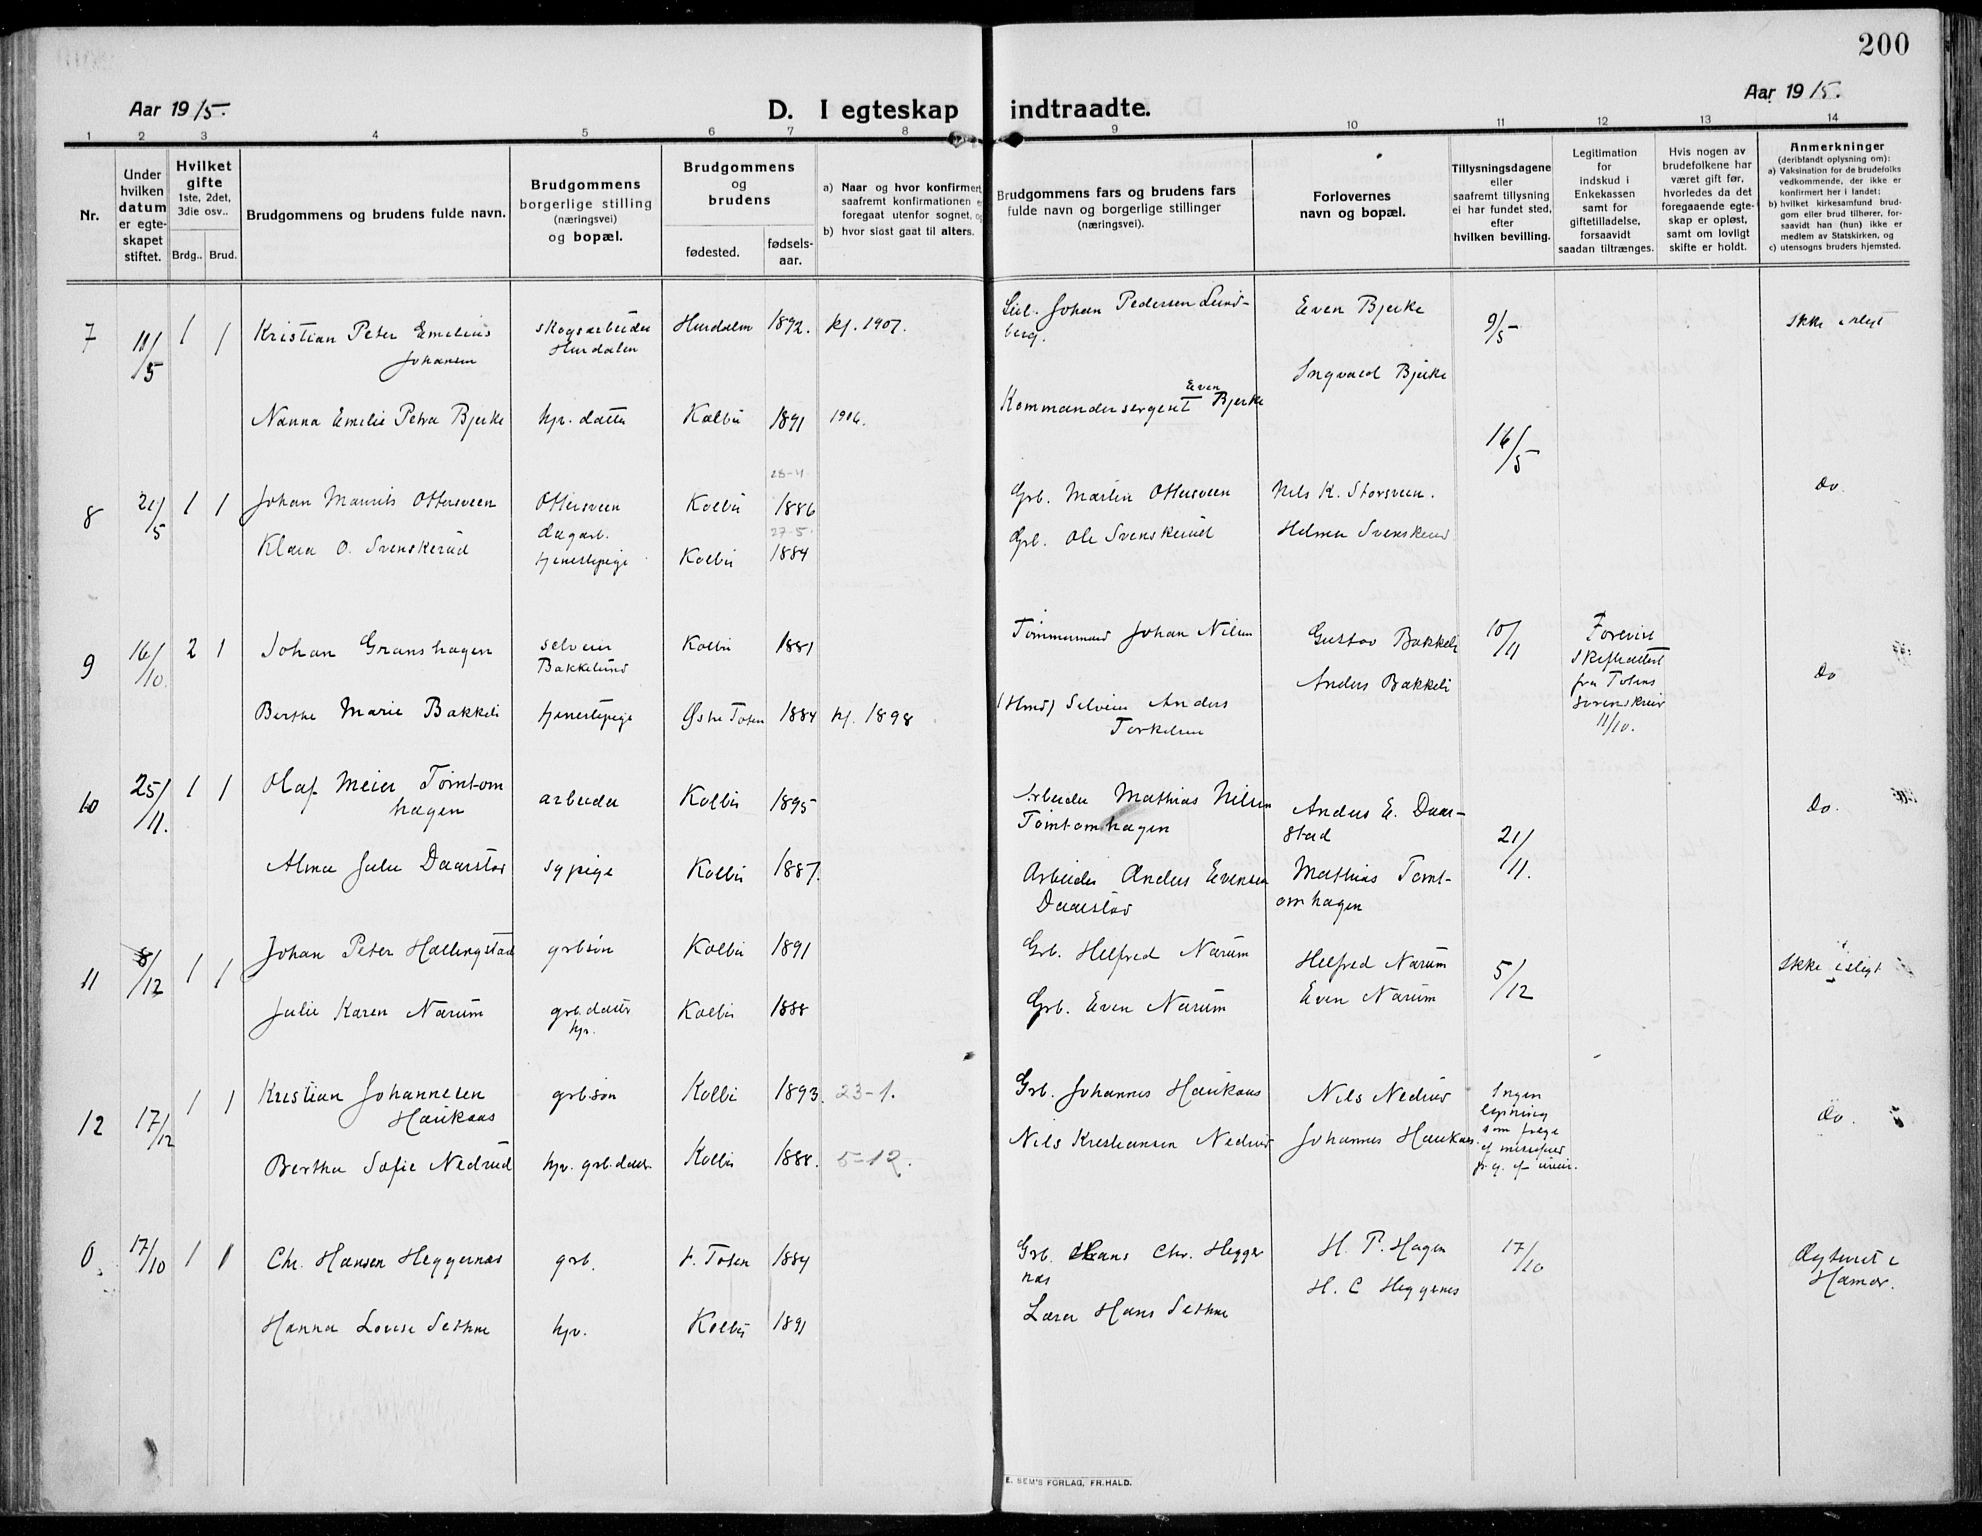 200
Aar 1915.
D. I egteskap indtraadte.
Aar 1915.
1 2 3 4 5 6 7 8 9 10 11 12 13 14
Nr.
Under
hvilken
datum
er egte-
skapet
stiftet.
Hvilket
gifte
1ste, 2det,
3die osv..
Brdg.. Brud.
Brudgommens og brudens fulde navn.
Brudgommens
borgerlige stilling
(næringsvei)
og bopæl.
Brudgommens
og
brudens
fødested.
fødsels-
aar.
a) Naar og hvor konfirmert,
saafremt konfirmationen er
foregaat utenfor sognet, og
b) hvor sidst gaat til alters.
Brudgommens fars og brudens fars
fulde navn og borgerlige stillinger
(næringsvei).
Forlovernes
navn og bopæl.
Tillysningsdagene
eller
saafremt tillysning
ei har fundet sted,
efter
hvilken bevilling.
Legitimation
for
indskud i
Enkekassen
samt for
giftetilladelse,
forsaavidt
saadan tiltrænges.
Hvis nogen av
brudefolkene har
været gift før,
hvorledes da det
foregaaende egte-
skap er opløst,
samt om lovligt
skifte er holdt.
Anmerkninger
(deriblandt oplysning om):
a) Vaksination for de brudefolks
vedkommende, der ikke er
konfirmert her i landet;
b) hvilket kirkesamfund brud-
gom eller brud tilhører, for-
saavidt han (hun) ikke er
medlem av Statskirken, og
c) utensogns bruders hjemsted.
7 11/5 1 1 Kristian Peter Emelius skogsarbeider Hurdalen 1892. kf. 1907. Johan Pedersen Lund- Even Bjerke 9/5 Ikke i slegt
Johansen Hurdalen berg.
Ingvald Bjerke
Even
Nanna Emelie Petra Bjerke hjv. datter Kolbu 1891 1906. Kommandersergent Bjerke 16/5
28-4
8 21/5 1 1 Johan Maurits Ottersveen Ottersveen Kolbu 1886 Grb. Martin Ottersveen Nils K. Storsveen. Do.
dagarb. 27-5.
Klara O. Svenskerud tjenestepige Kolbu 1884 Grb. Ole Svenskerud Helmer Svenskerud
9 16/10. 2 1 Johan Granshagen selveier Kolbu 1881 Tømmermand Johan Nilsen Gustav Bakkeli 10/11 Forevist Do
Bakkelund skifteattest
Anders Bakkeli fra Totens
Berthe Marie Bakkeli tjenestepige Østre Toten 1884 kf. 1898 (Hmd) Selveier Anders sorenskriver
Torkelsen 11/10.
10 25/11. 1 1 Olaf Meier Tømtom arbeider Kolbu 1895 Arbeider Mathias Nilsen Anders E. Daar- 21/11. Do.
hagen Tømtomhagen stad
Alma Julie Daarstad sypige Kolbu 1887. Arbeider Anders Evensen Mathias Tømt-
Daarstad omhagen
11 8/12 1 1 Johan Peter Hallingstad grbsøn Kolbu 1891 Grb. Helfred Narum Helfred Narum 5/12 Ikke i slegt
Julie Karen Narum grb.datter Kolbu 1888 Grb. Even Narum Even Narum
hjv.
12 17/12 1 1 Kristian Johannesen grbsøn Kolbu 1893. 23-1. Grb. Johannes Haukaas Nils Nedrud Ingen Do.
Haukaas lysning
som følge
Bertha Sofie Nedrud hjv. grb.datter Kolbu 1888. 5-12. Nils Kristiansen Nedrud Johannes Haukaas.
0 17/10 1 1 Chr. Hansen Heggernæs grb. V. Toten 1884 Grb. Hans Chr. Hegger H. P. Hagen 17/10 Ægteviet i
næs Hamar.
H. C Heggenes
Hanna Lovise Sethne hjv. Kolbu 1891 Lærer Hans Sethne
E. SEM'S FORLAG, FR.HALD.